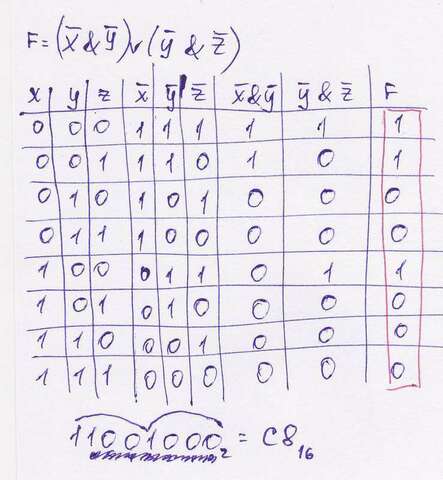 F=(x̅&y̅)∨(y̅&z̅)
x y z x̅ y̅ z̅ x̅&y̅ y̅&z̅ F
0 0 0 1 1 1 1 1 1
0 0 1 1 1 0 1 0 1
0 1 0 1 0 1 0 0 0
0 1 1 1 0 0 0 0 0
1 0 0 0 1 1 0 1 1
1 0 1 0 1 0 0 0 0
1 1 0 0 0 1 0 0 0
1 1 1 0 0 0 0 0 0
11001000₂ = C8₁₆